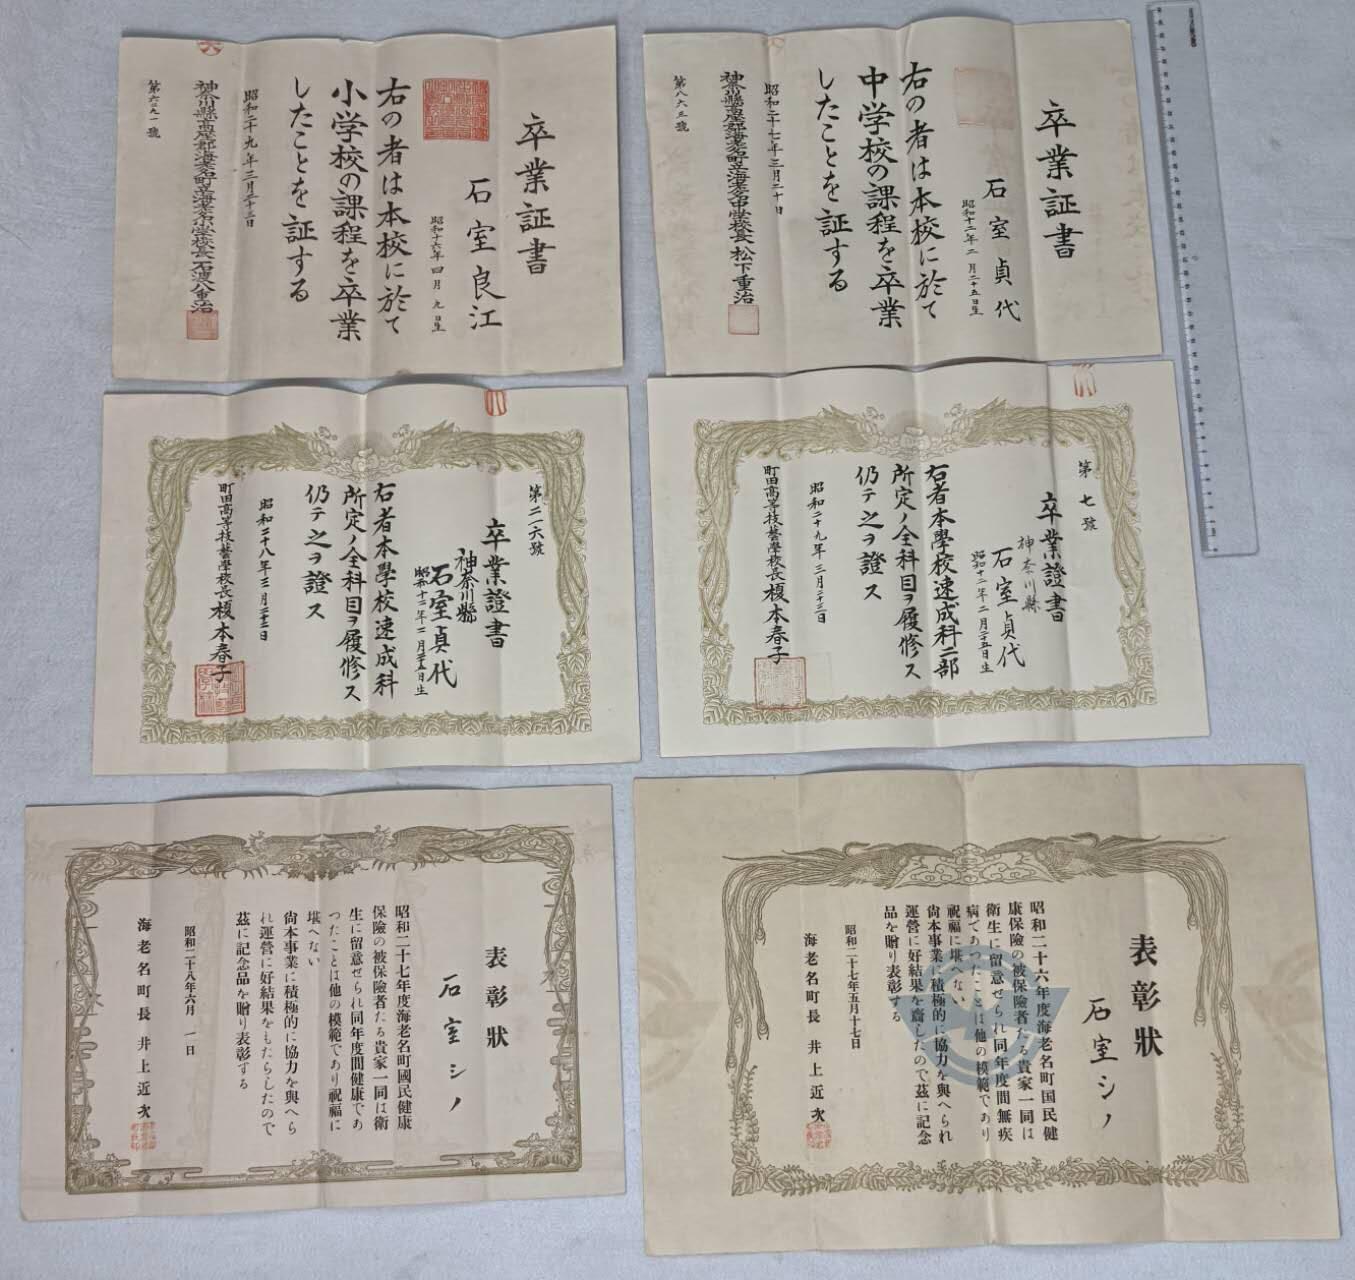 卒業証書
石室良江
昭和十六年四月九日生
右の者は本校に於て
小学校の課程を卒業
したことを証する
昭和二十九年三月二十三日
神奈川縣高座郡海老名町立海老名小学校長
第六二九一號
卒業証書
石室貞代
昭和十二年二月二十五日生
右の者は本校に於て
中学校の課程を卒業
したことを証する
昭和二十七年三月二十日
神奈川縣高座郡海老名町立海老名中学校長 松下重治
第八六三號
第二一六號
卒業證書
神奈川縣
石室貞代
昭和十二年二月二十五日生
右者本學校速成科
所定ノ全科目ヲ履修ス
仍テ之ヲ證ス
昭和二十八年三月二十三日
町田高等技藝學校長 榎本春子
第七號
卒業證書
神奈川縣
石室貞代
昭和十二年二月二十五日生
右者本學校速成科二部
所定ノ全科目ヲ履修ス
仍テ之ヲ證ス
昭和二十九年三月二十三日
町田高等技藝學校長 榎本春子
表彰狀
石室シノ
昭和二十七年度海老名町國民健康
保險の被保險者たる貴家一同は衛
生に留意せられ同年度間健康であ
つたことは他の模範であり祝福に
堪へない
尙本事業に積極的に協力を與へら
れ運營に好結果をもたらしたので
茲に記念品を贈り表彰する
昭和二十八年六月一日
海老名町長 井上近次
表彰狀
石室シノ
昭和二十六年度海老名町国民健
康保險の被保險者たる貴家一同は
衛生に留意せられ同年度間無疾
病であつたことは他の模範であり
祝福に堪へない
尙本事業に積極的に協力を與へられ
運營に好結果を齎したので茲に記念
品を贈り表彰する
昭和二十七年五月十七日
海老名町長 井上近次